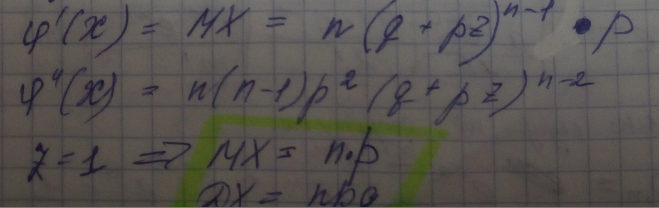 φ'(x) = MX = n(q + pz)^{n-1} · p
φ''(x) = n(n-1)p² (q + pz)^{n-2}
z = 1 ⇒ MX = n·p
DX = npq